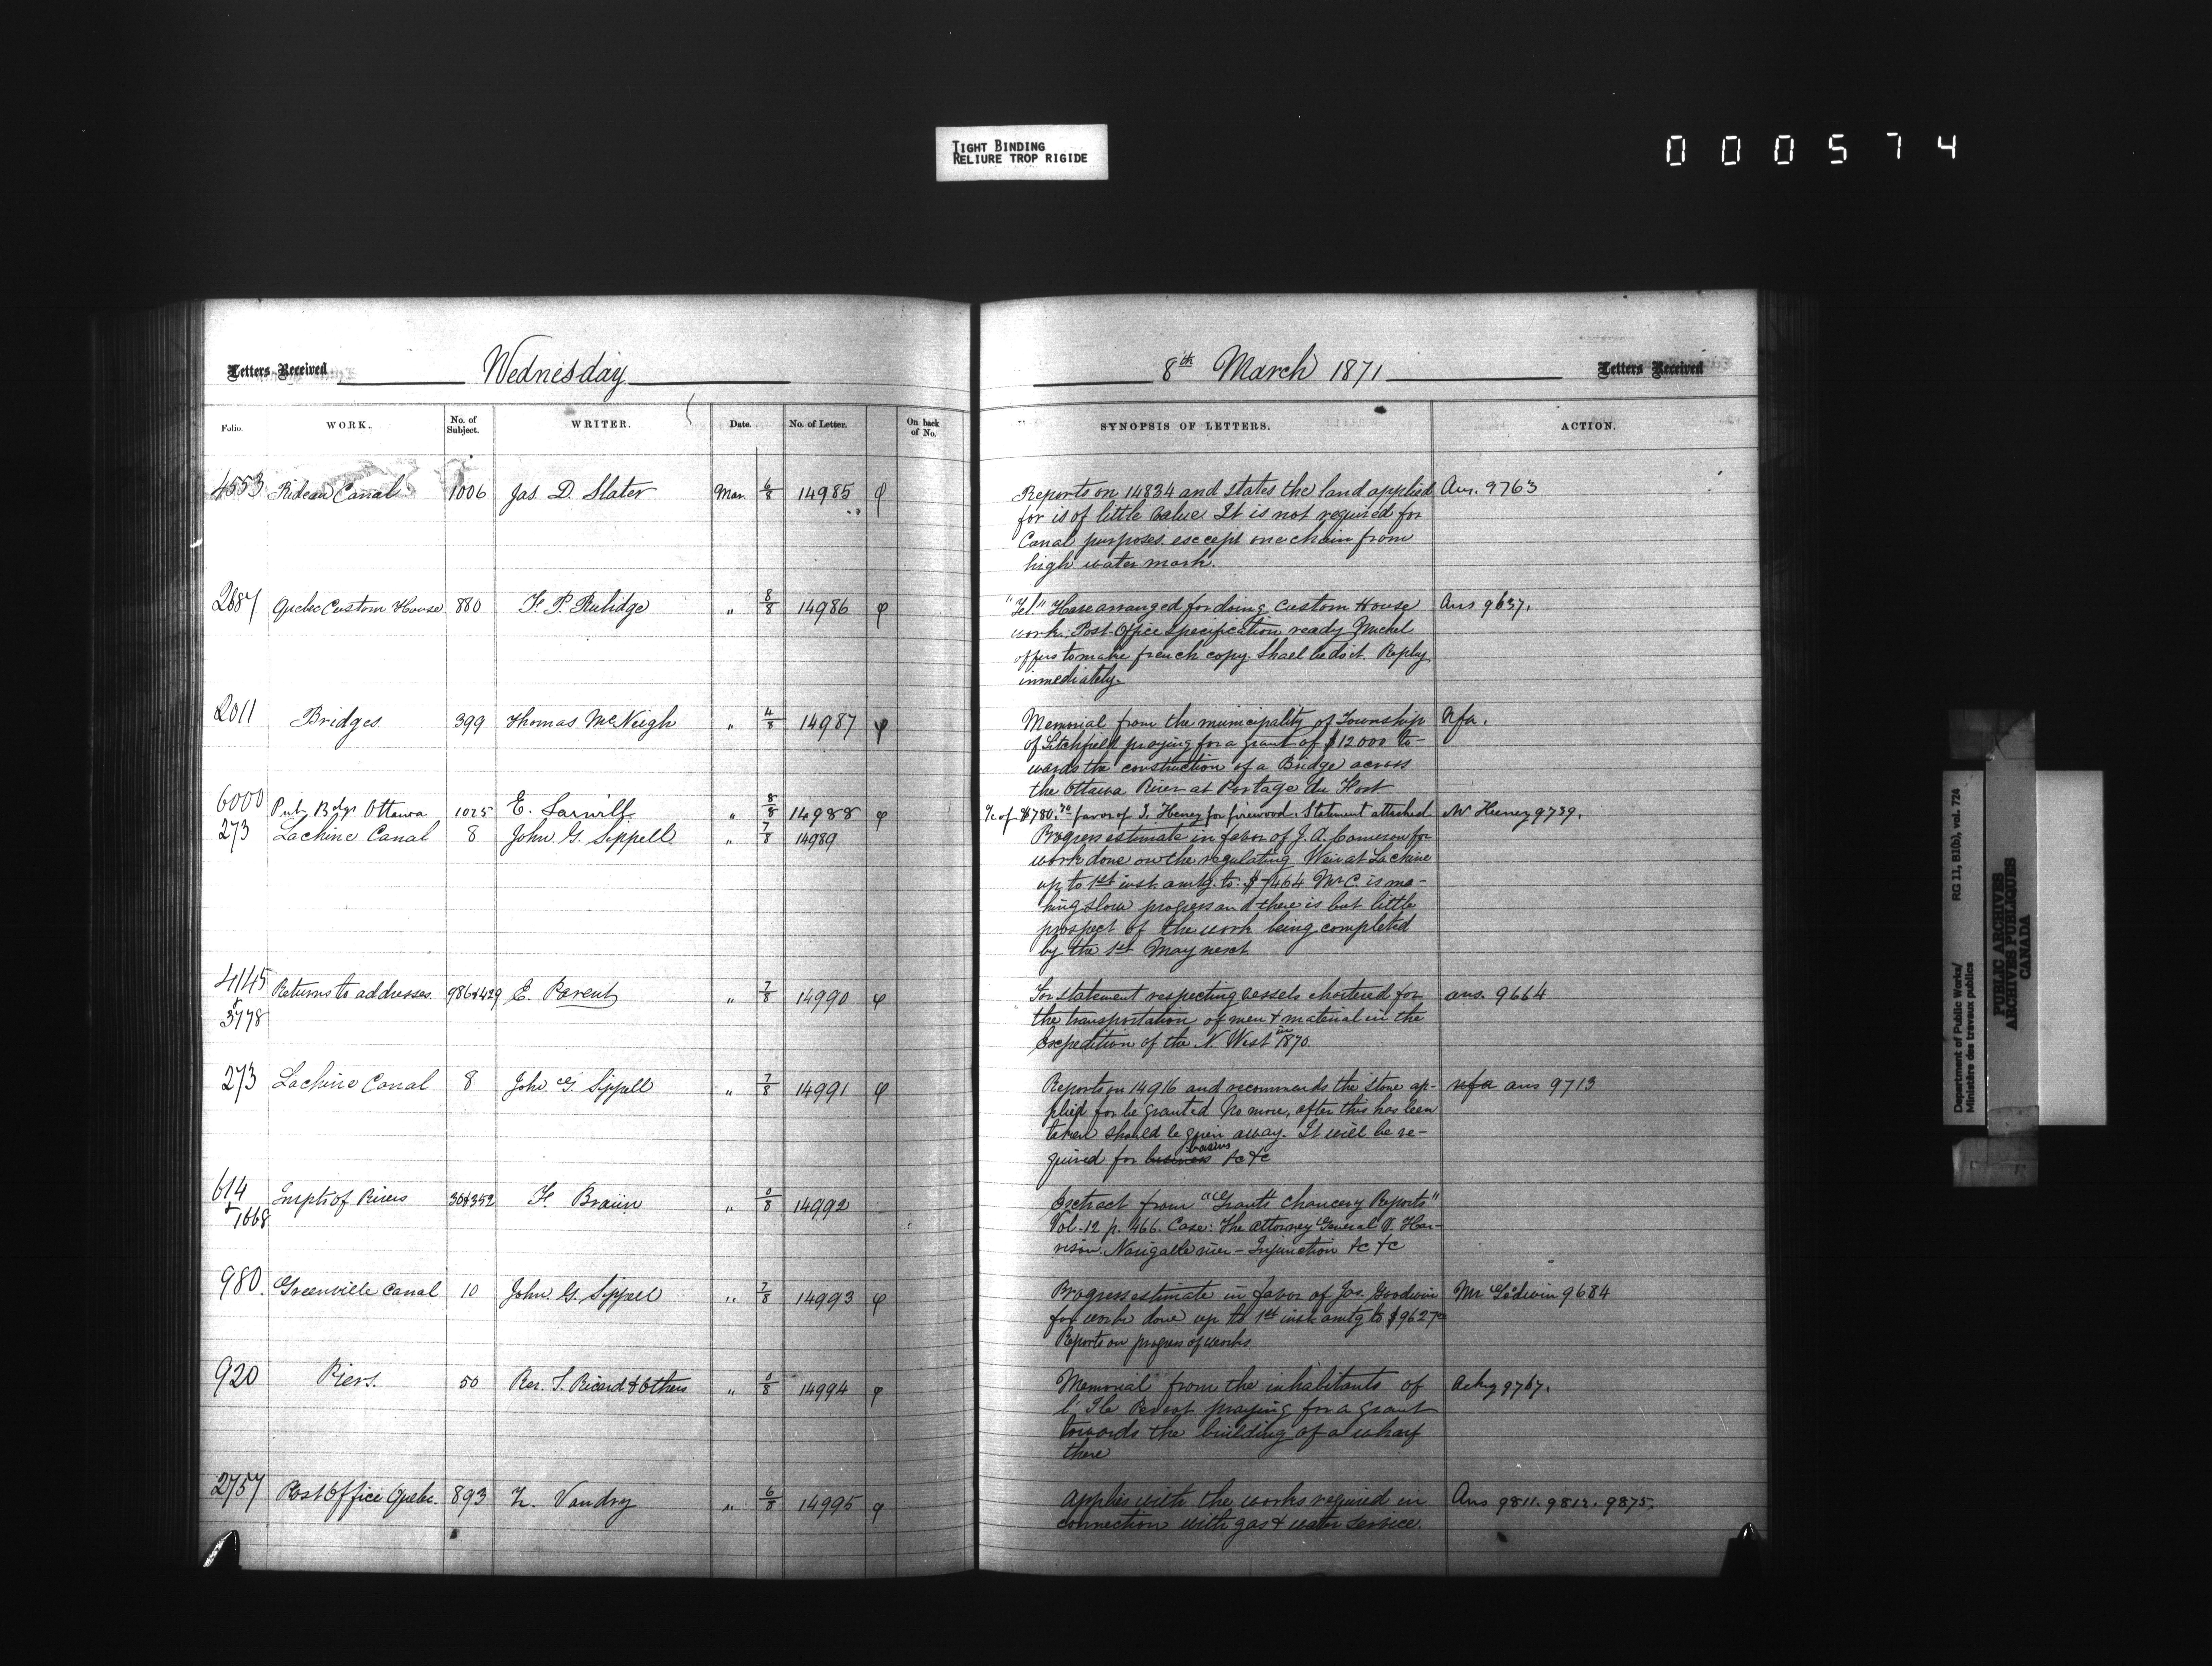 TIGHT BINDING
RELIURE TROP RIGIDE
000574
Letters Received Wednesday
8th March 1871 Letters Received
Folio. WORK. No. of Subject. WRITER. Date. No. of Letter. On back of No.
SYNOPSIS OF LETTERS. ACTION.
4553 Rideau Canal 1006 Jas. D. Slater Mar. 6/8 14985 φ
Reports on 14834 and states the land applied Ans. 9763
for is of little value. It is not required for
Canal purposes except one chain from
high water mark.
2687 Quebec Custom House 880 F. P. Rubidge " 8/8 14986 φ
"Tel." Have arranged for doing Custom House Ans 9637.
work. Post Office specification ready Michel
offers to make french copy. Shall he do it. Reply
immediately.
2011 Bridges 399 Thomas McNeigh " 4/8 14987 φ
Memorial from the municipality of Township Nfa.
of Litchfield praying for a grant of $12000 to-
wards the construction of a Bridge across
the Ottawa River at Portage du Fort
6000 Pub. Bdgs Ottawa 1025 E. " 8/8 14988 φ
of $780.70 favor of J. Heney for firewood. Statement attached Mr Heney 9739.
273 Lachine Canal 8 John G. Sippell " 7/8 14989
Progress estimate in favor of J. A. Cameron for
work done on the regulating Weir at Lachine
up to 1st inst. amtg. to. $7464 Mr C. is ma-
king slow progress and there is but little
prospect of the work being completed
by the 1st May next
4145 & 3778 Returns to addresses. 986&429 E. Parent " 7/8 14990 φ
For statement respecting vessels chartered for ans. 9664
the transportation of men & material in the
Expedition of the N. West in 1870.
273 Lachine Canal 8 John G. Sippell " 7/8 14991 φ
Reports on 14916 and recommends the stone ap- nfa ans 9713
plied for be granted No more, after this has been
taken should be given away. It will be re-
quired for business basins &c &c
614 & 1668 Impts of Rivers 30&352 F. Braün " 0/8 14992
Extract from "Grant's Chancery Reports"
Vol. 12 p. 466. Case: The attorney General V. Har-
rison Navigable river - Injunction &c &c
980. Greenville Canal 10 John G. Sippell " 7/8 14993 φ
Progress estimate in favor of Jas. Goodwin Mr Godwin 9684
for works done up to 1st inst. amtg to $9627
Reports on progress of works
920 Piers. 50 Rev. T. Ricard & Others " 0/8 14994 φ
Memorial from the inhabitants of Ackg 9767.
l'Ile Perrot praying for a grant
towards the building of a wharf
there
2757 Post Office Quebec. 893 Z. Vandry " 6/8 14995 φ
Applies with the works required in Ans 9811. 9812. 9875.
connection with gas & water service.
Department of Public Works/ RG 11, B1(b), vol. 724
Ministère des travaux publics
PUBLIC ARCHIVES
ARCHIVES PUBLIQUES
CANADA